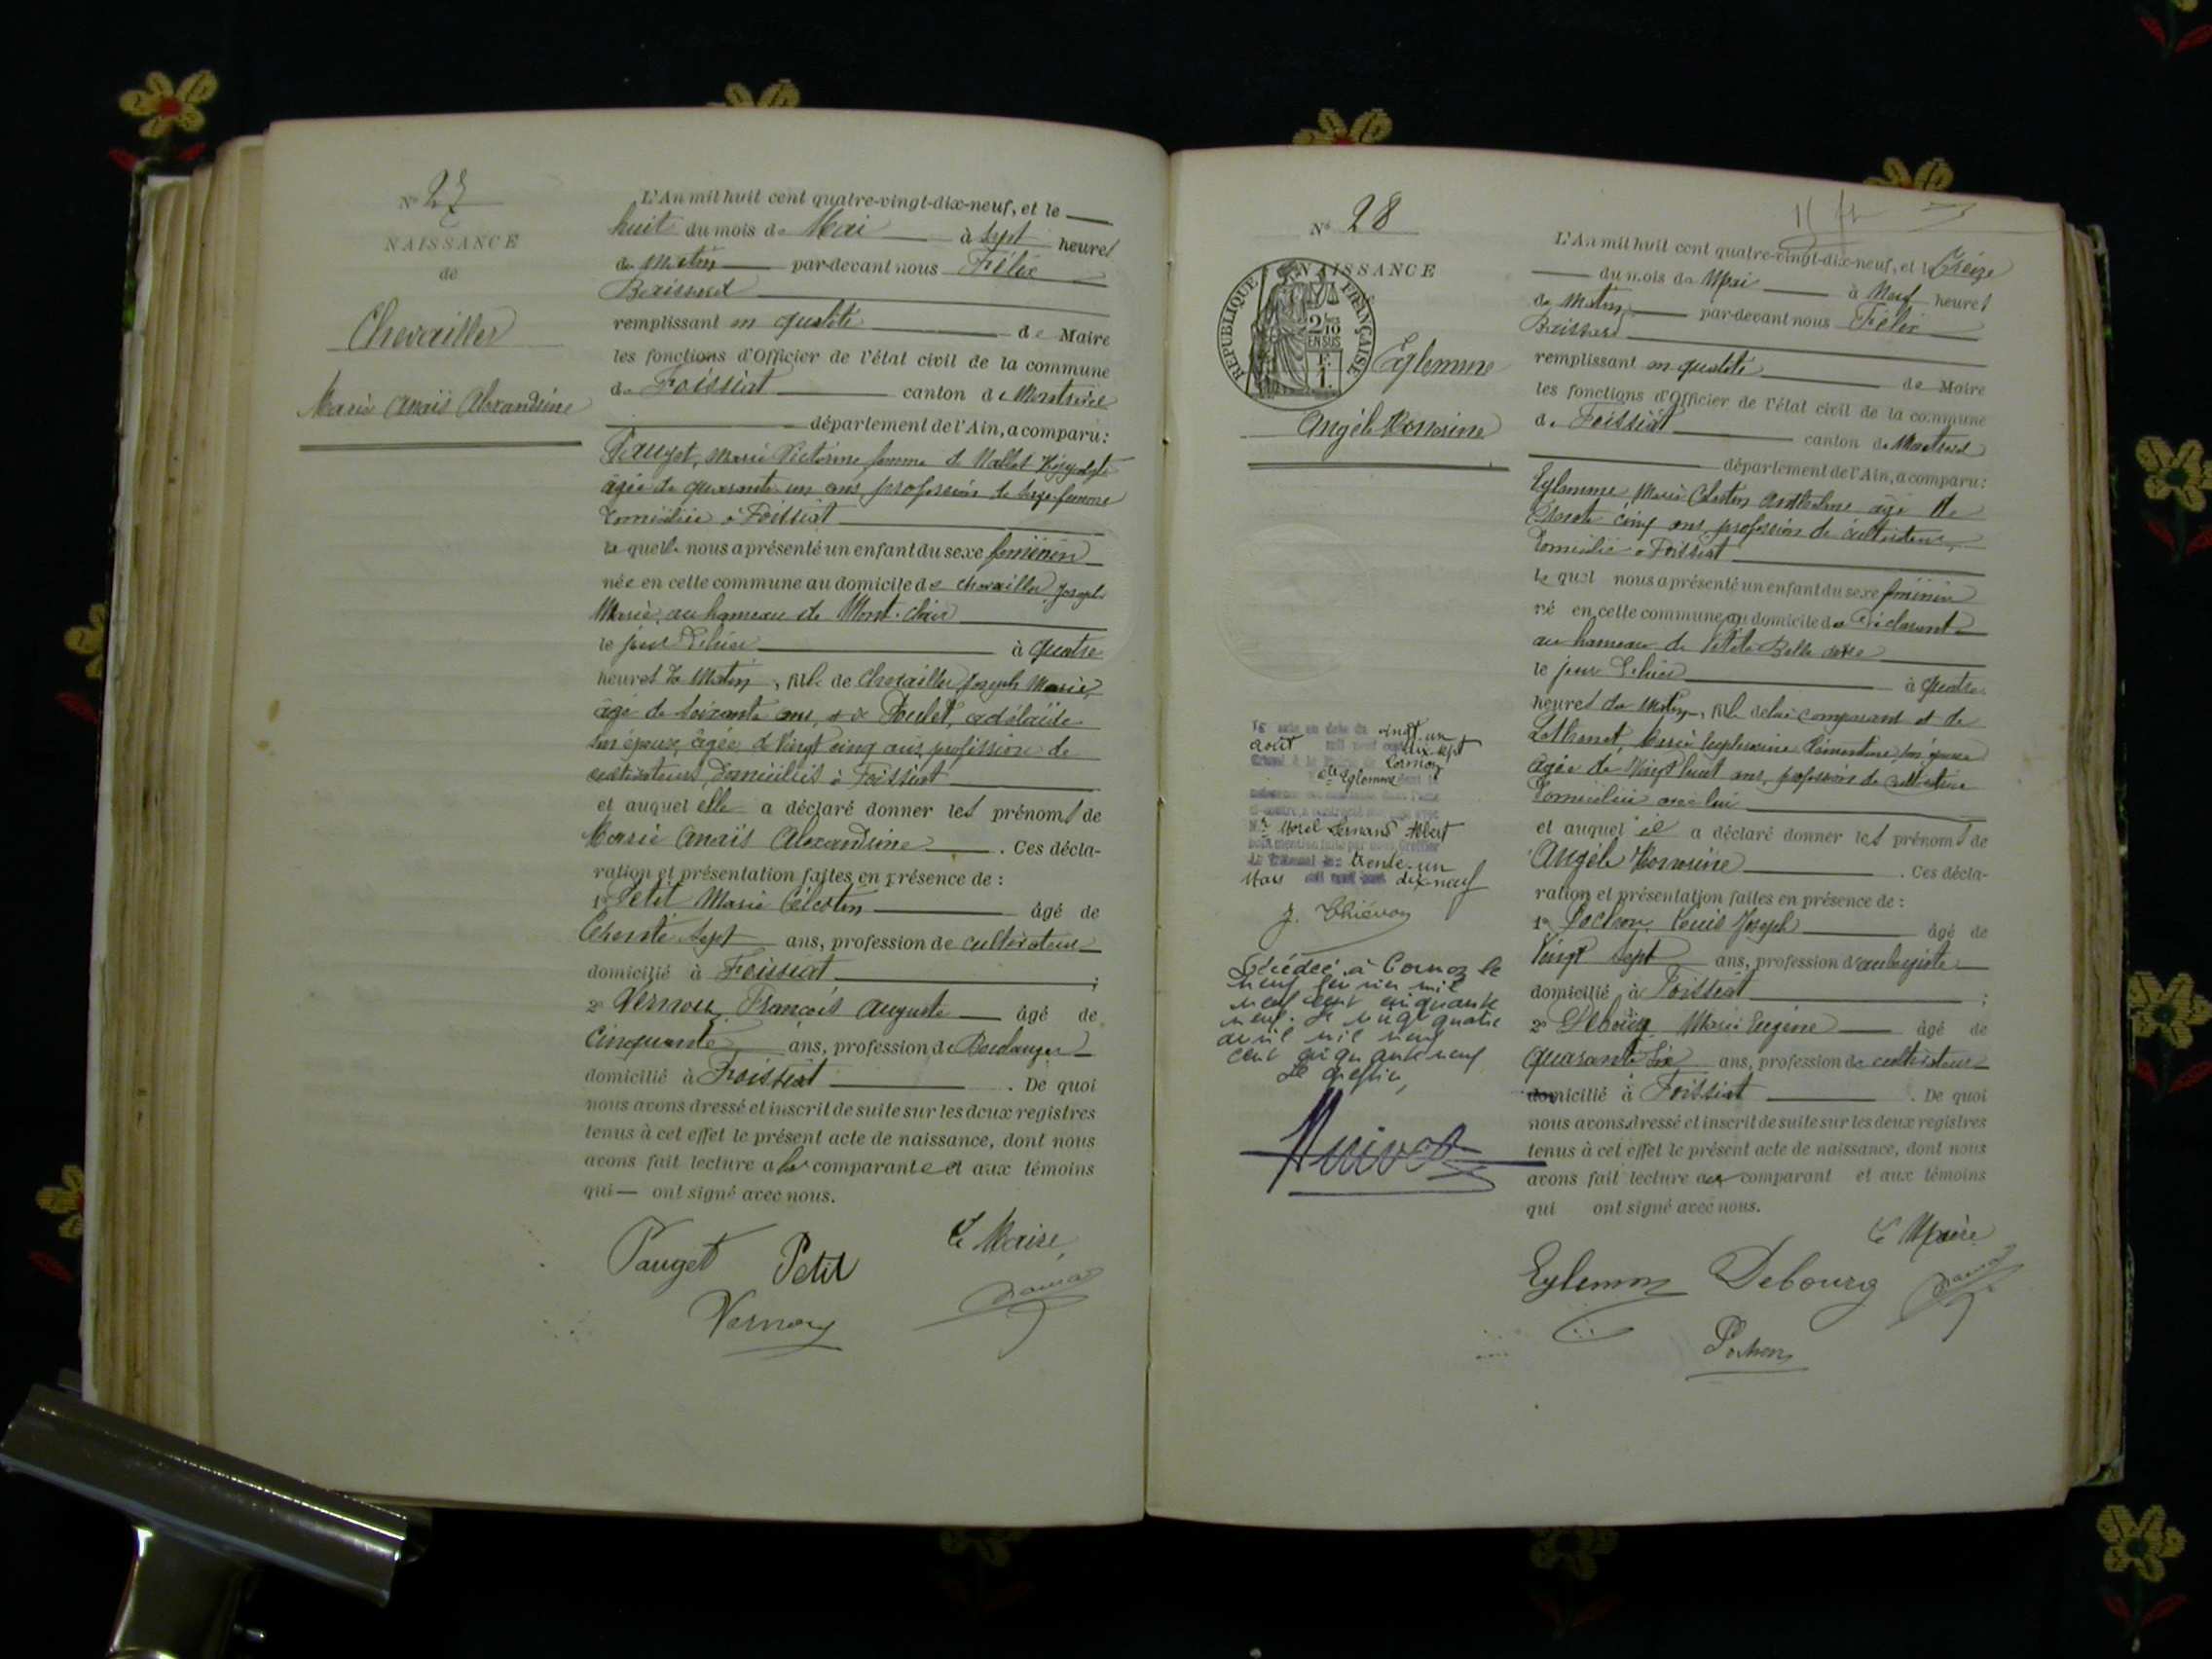 N° 27
NAISSANCE
de
Chevailler
Marie Anaïs Alexandrine
L'An mil huit cent quatre-vingt-dix-neuf, et le
huit du mois de Mai à sept heures
du matin par-devant nous Félix
remplissant en qualité de Maire
les fonctions d'Officier de l'état civil de la commune
de Foissiat canton de Montrevel
département de l'Ain, a comparu:
Pauget, Marie Victorine femme de Hippolyte
âgée de quarante un ans, profession de sage-femme
domiciliée à Foissiat
laquelle nous a présenté un enfant du sexe féminin
née en cette commune au domicile de Chevailler Joseph
Marie, au hameau de Mont-Clair
le jour d'hier à quatre
heures du Matin, fille de Chevailler Joseph Marie,
âgé de soixante ans, et de Poulet, adélaïde
son épouse, âgée de vingt cinq ans, profession de
cultivateurs, domiciliés à Foissiat
et auquel elle a déclaré donner les prénoms de
Marie Anaïs Alexandrine. Ces décla-
ration et présentation faites en présence de :
1° Petit Marie Célestin âgé de
trente sept ans, profession de cultivateur
domicilié à Foissiat ;
2° Vernoux François Auguste âgé de
cinquante ans, profession de Boulanger
domicilié à Foissiat. De quoi
nous avons dressé et inscrit de suite sur les deux registres
tenus à cet effet le présent acte de naissance, dont nous
avons fait lecture à la comparante et aux témoins
qui — ont signé avec nous.
Le Maire,
Pauget Petit
Vernoux
N° 28
NAISSANCE
REPUBLIQUE FRANÇAISE
2/10 EN SUS
F. 1.
Eylemme
Angèle Honorine
vingt-un
août dix-sept
Cormoz
Eylemme
Mr Morel Fernand Albert
trente-un
Mars dix-neuf
J. Thiévon
Décédée à Cormoz le
neuf février mil
neuf cent cinquante
neuf. Le vingt quatre
avril mil neuf
cent cinquante neuf
Le greffier,
L'An mil huit cent quatre-vingt-dix-neuf, et le treize
du mois de Mai à Neuf heures
du Matin par-devant nous Félix
remplissant en qualité de Maire
les fonctions d'Officier de l'état civil de la commune
de Foissiat canton de Montrevel
département de l'Ain, a comparu:
Eylemme Marie Célestin Anthelme âgé de
trente cinq ans, profession de cultivateur
domicilié à Foissiat
lequel nous a présenté un enfant du sexe féminin
né en cette commune au domicile du déclarant
au hameau de
le jour d'hier à quatre
heures du Matin, fille de lui comparant et de
Marie Clémentine son épouse
âgée de vingt huit ans, profession de cultivatrice
domiciliée avec lui
et auquel il a déclaré donner les prénoms de
Angèle Honorine. Ces décla-
ration et présentation faites en présence de :
1° Pochon Louis Joseph âgé de
vingt sept ans, profession d'aubergiste
domicilié à Foissiat ;
2° Debourg Marie Eugène âgé de
quarante six ans, profession de cultivateur
domicilié à Foissiat. De quoi
nous avons dressé et inscrit de suite sur les deux registres
tenus à cet effet le présent acte de naissance, dont nous
avons fait lecture au comparant et aux témoins
qui ont signé avec nous.
Le Maire
Eylemm Debourg
Pochon